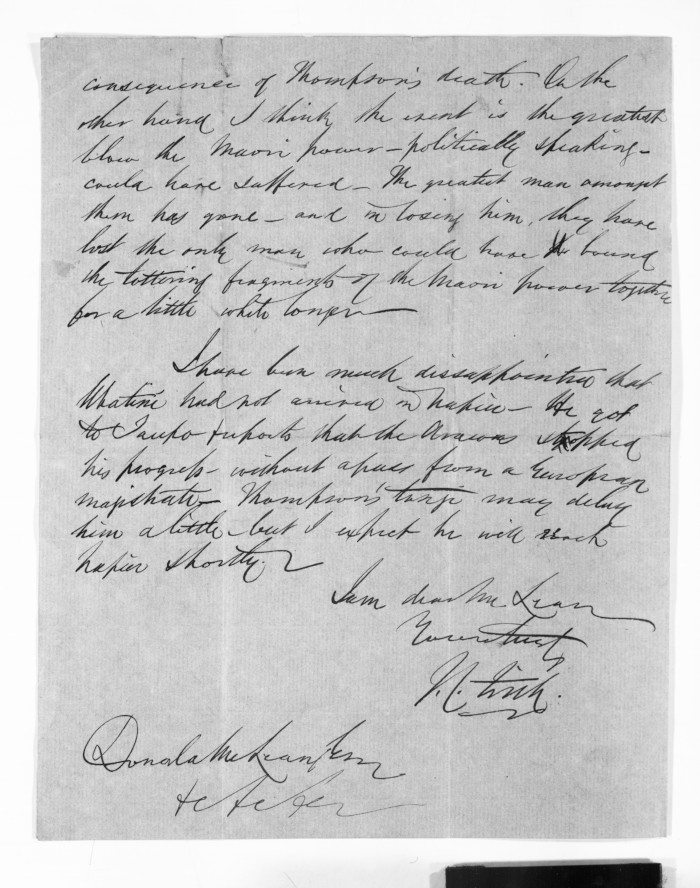 consequence of Thompson's death. On the
other hand I think the event is the greatest
blow the Maori power – politically speaking –
could have suffered – The greatest man amongst
them has gone – and in losing him, they have
lost the only man who could have bound
the tottering fragments of the Maori power together
for a little while longer –
I have been much dissappointed that
Whatiné had not arrived in Napier – He got
to Taupo & reports that the Arawas stopped
his progress – without a pass from a European
magistrate – Thompson's tangi may delay
him a little – but I expect he will reach
Napier shortly.
I am dear McLean
Yours truly
Donald McLean Esqr
&c &c &c